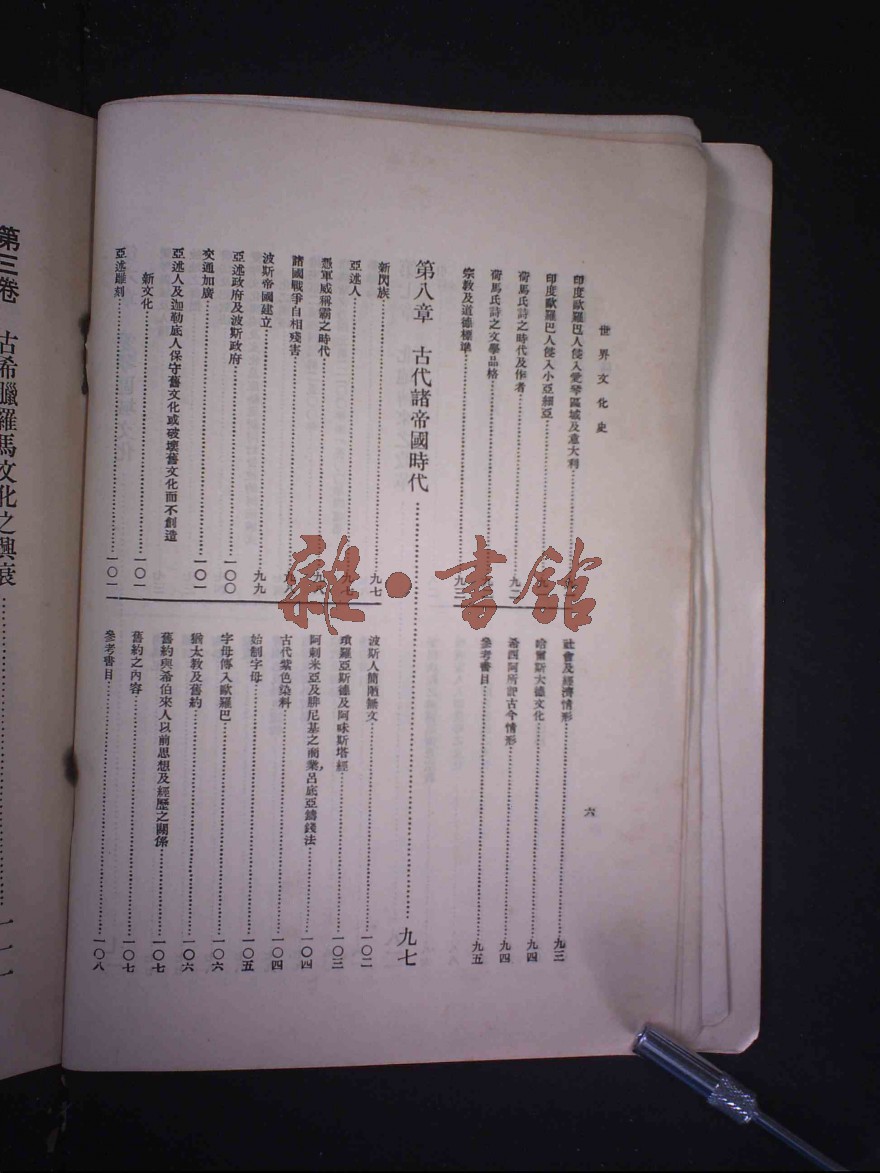 世界文化史
六
印度歐羅巴人侵入愛琴區域及意大利
印度歐羅巴人侵入小亞細亞
荷馬氏詩之時代及作者……九二
荷馬氏詩之文學品格
宗教及道德標準……九三
社會及經濟情形……九三
哈爾斯大德文化……九四
希西阿所記古今情形……九四
參考書目……九五
第八章　古代諸帝國時代……九七
新閃族……九七
亞述人……九七
憑軍威稱霸之時代
諸國戰爭自相殘害……九八
波斯帝國建立……九九
亞述政府及波斯政府……一〇〇
交通加廣……一〇一
亞述人及迦勒底人保守舊文化或破壞舊文化而不創造
新文化……一〇一
亞述雕刻……一〇二
波斯人簡陋無文……一〇二
瑣羅亞斯德及阿味斯塔經……一〇三
阿剌米亞及腓尼基之商業，呂底亞鑄錢法……一〇四
古代紫色染料……一〇四
始制字母……一〇五
字母傳入歐羅巴……一〇六
猶太教及舊約……一〇六
舊約與希伯來人以前思想及經歷之關係……一〇七
舊約之內容……一〇七
參考書目……一〇八
第三卷　古希臘羅馬文化之興衰……一一一
雜·書館